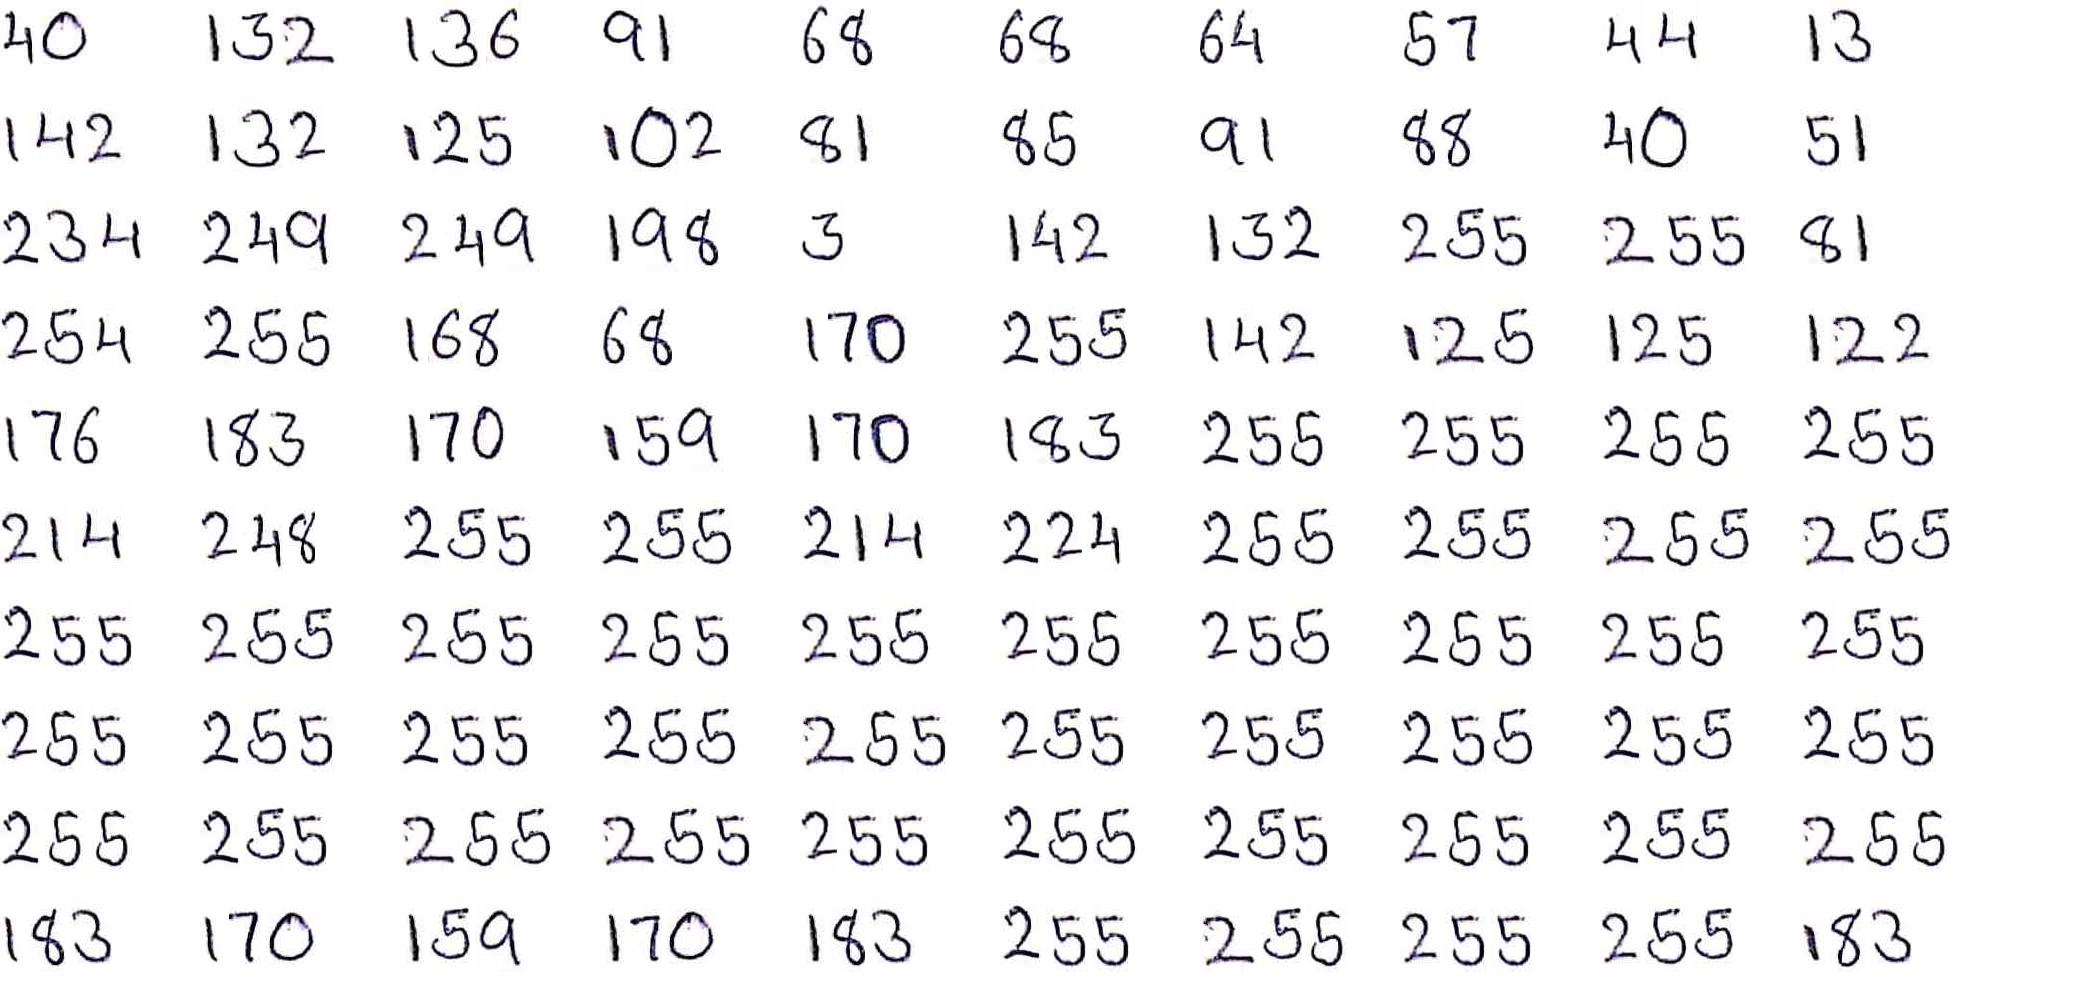 40 132 136 91 68 68 64 57 44 13
142 132 125 102 81 85 91 88 40 51
234 249 249 198 3 142 132 255 255 81
254 255 168 68 170 255 142 125 125 122
176 183 170 159 170 183 255 255 255 255
214 248 255 255 214 224 255 255 255 255
255 255 255 255 255 255 255 255 255 255
255 255 255 255 255 255 255 255 255 255
255 255 255 255 255 255 255 255 255 255
183 170 159 170 183 255 255 255 255 183